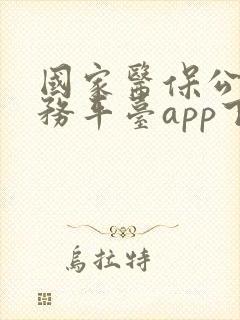 國家醫保公
務平臺app下
烏拉特